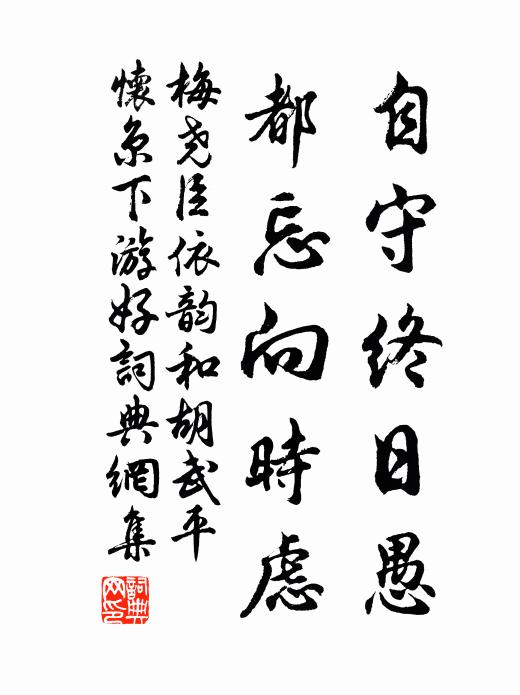 自守終日愚
都忘向時慮
梅尧臣依韵和胡武平
懷京下游好詞典網集
詞典网印